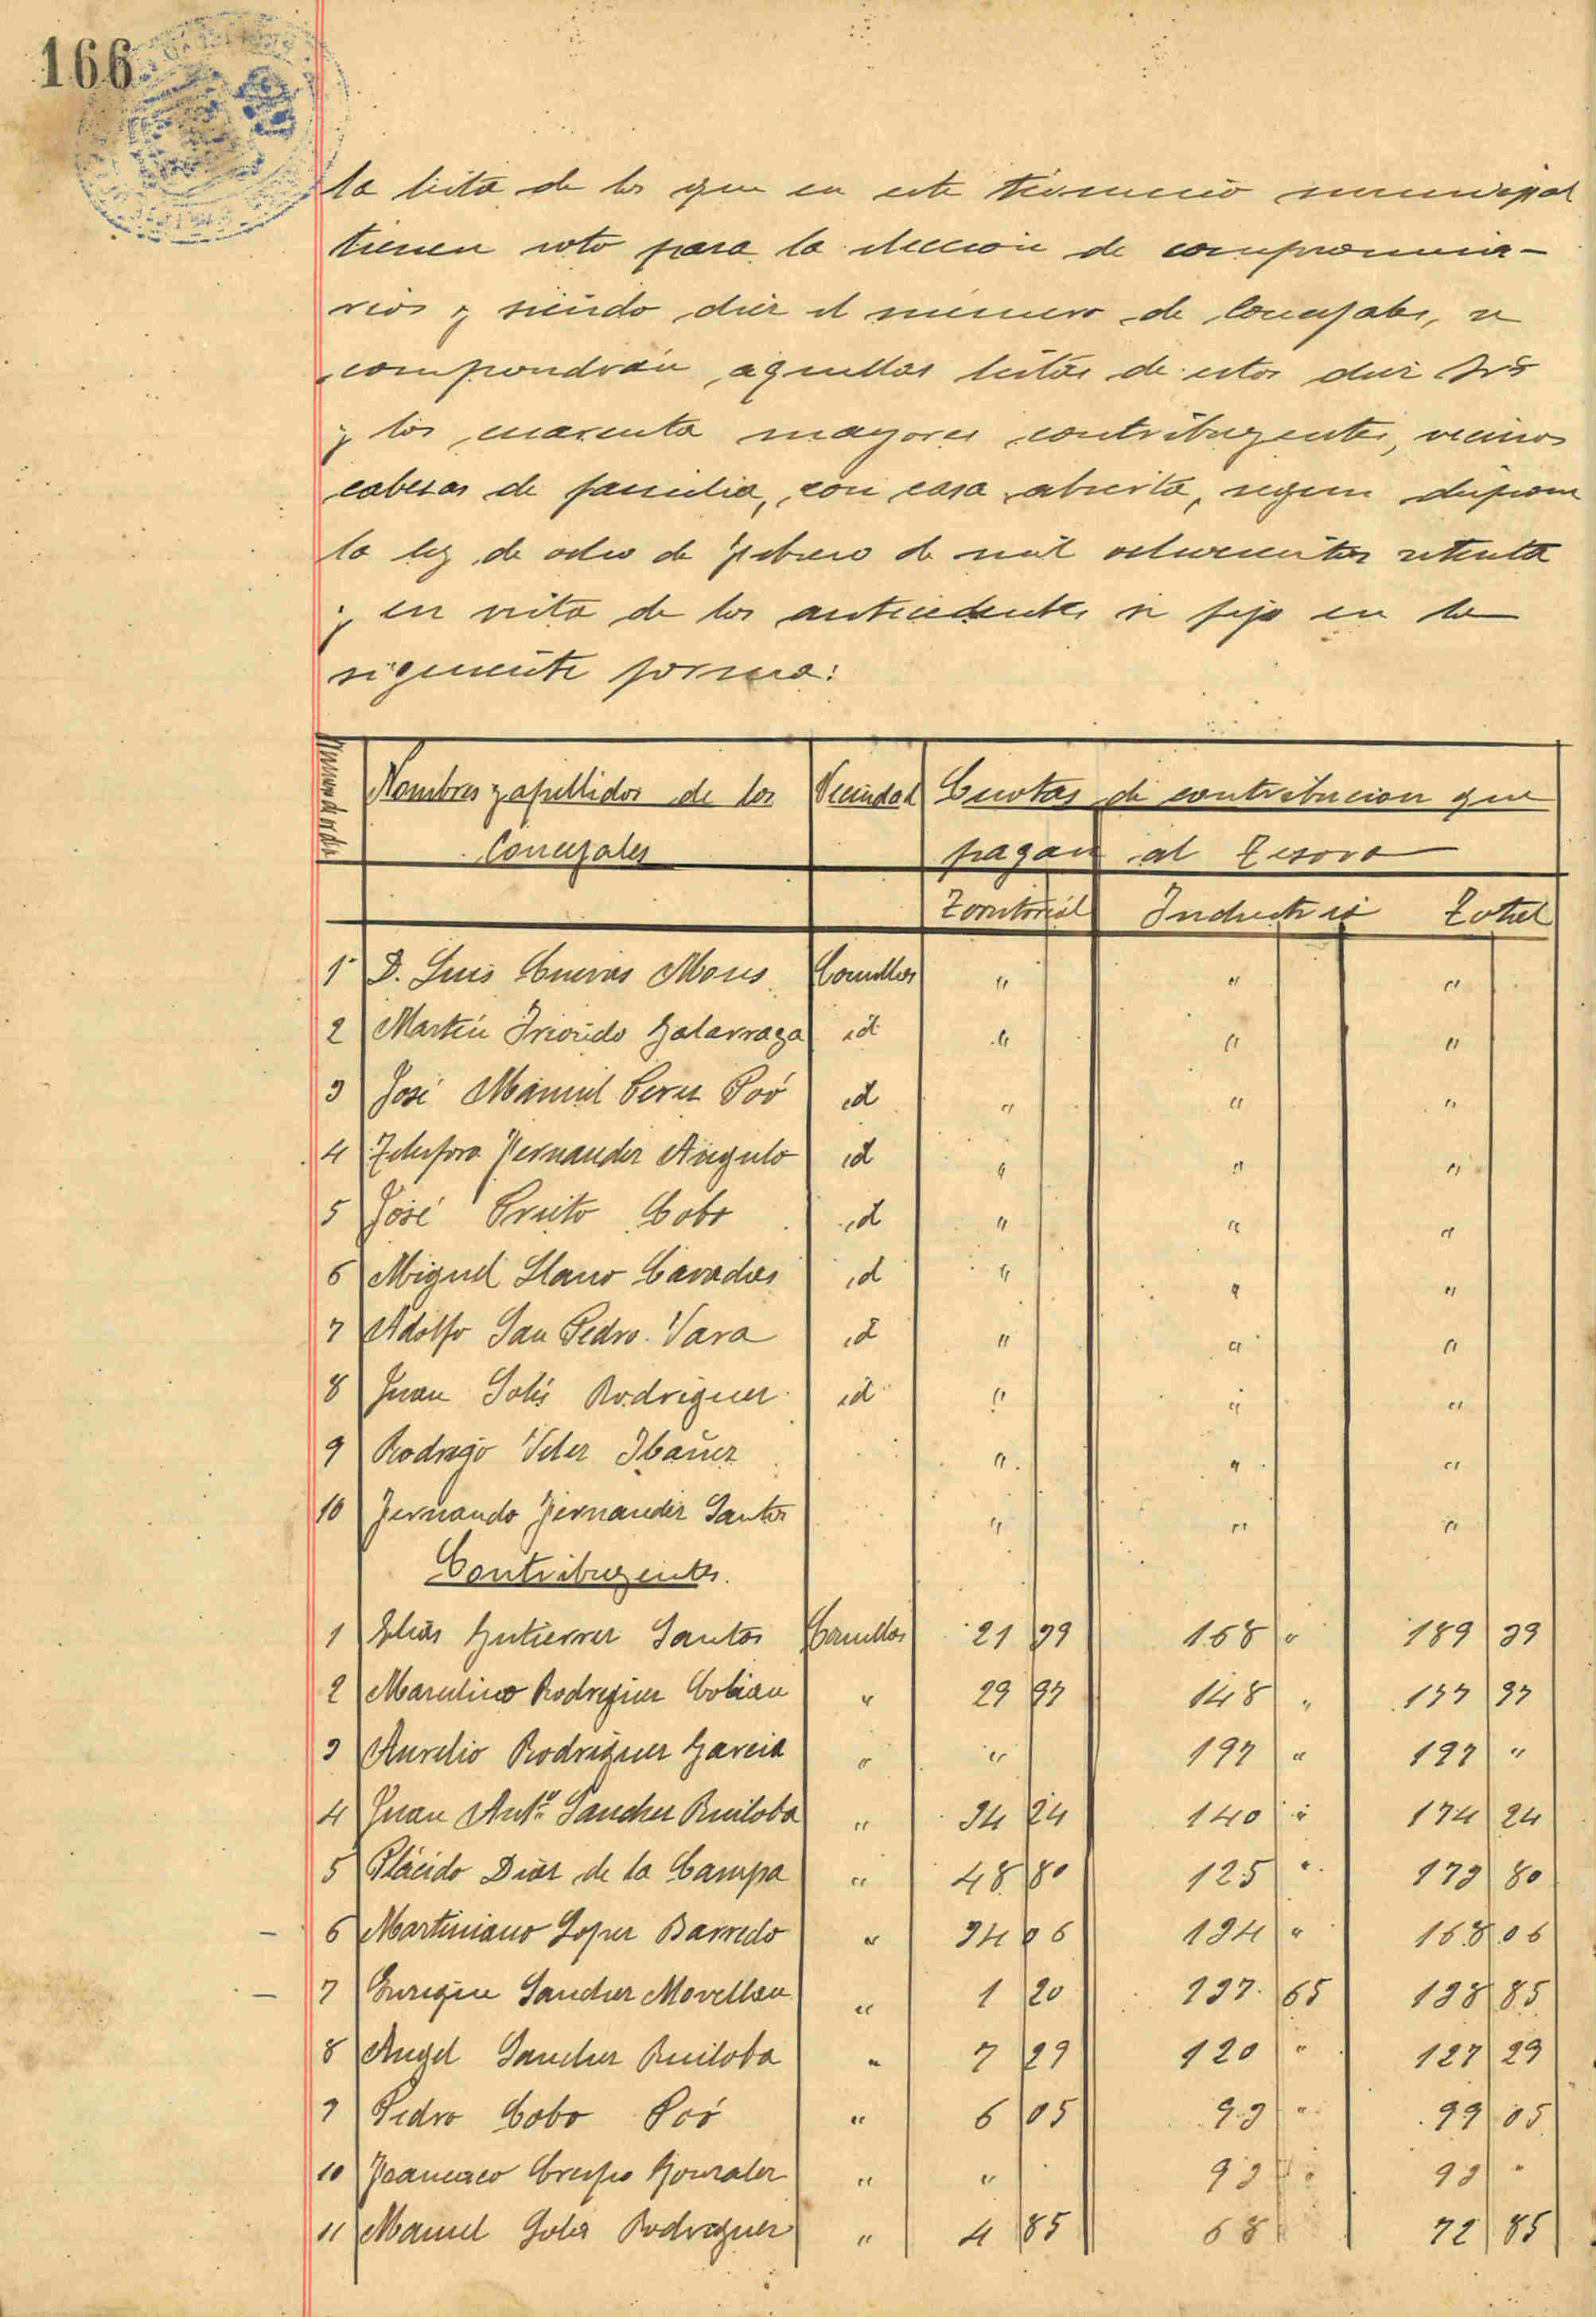 166
la lista de los que en este termino municipal
tienen voto para la eleccion de compromisa-
rios y siendo diez el número de Concejales, se
compondrán aquellas listas de estos diez Srs
y los cuarenta mayores contribuyentes, vecinos
cabezas de familia, con casa abierta, segun dispone
la ley de ocho de Febrero de mil ochocientos setenta
y en vista de los antecedentes se fijo en la
siguiente forma:
Numero de orden | Nombres y apellidos de los Concejales | Vecindad | Cuotas de contribucion que pagan al Tesoro
Territorial | Industrial | Total
1 D. Luis Cuevas Mores Comillas " " "
2 Martín Iriondo Galarraga id " " "
3 José Manuel Perez Poó id " " "
4 Telesforo Fernandez Angulo id " " "
5 José Prieto Cobo id " " "
6 Miguel Llano Cavadas id " " "
7 Adolfo San Pedro Vara id " " "
8 Juan Solís Rodriguez id " " "
9 Rodrigo Velez Ibañez " " "
10 Fernando Fernandez Santos " " "
Contribuyentes.
1 Elías Gutierrez Santos Comillas 21 39 168 " 189 39
2 Marcelino Rodriguez Cobian " 29 97 148 " 177 97
3 Aurelio Rodriguez Garcia " " 197 " 197 "
4 Juan Antº Sanchez Ruiloba " 34 24 140 " 174 24
5 Plácido Diaz de la Campa " 48 80 125 " 173 80
6 Martiniano Lopez Barredo " 34 06 134 " 168 06
7 Enrique Sanchez Movellan " 1 20 137 65 138 85
8 Angel Sanchez Ruiloba " 7 29 120 " 127 29
9 Pedro Cobo Poó " 6 05 93 " 99 05
10 Francisco Crespo Gonzalez " " 93 " 93 "
11 Manuel Solis Rodriguez " 4 85 68 72 85